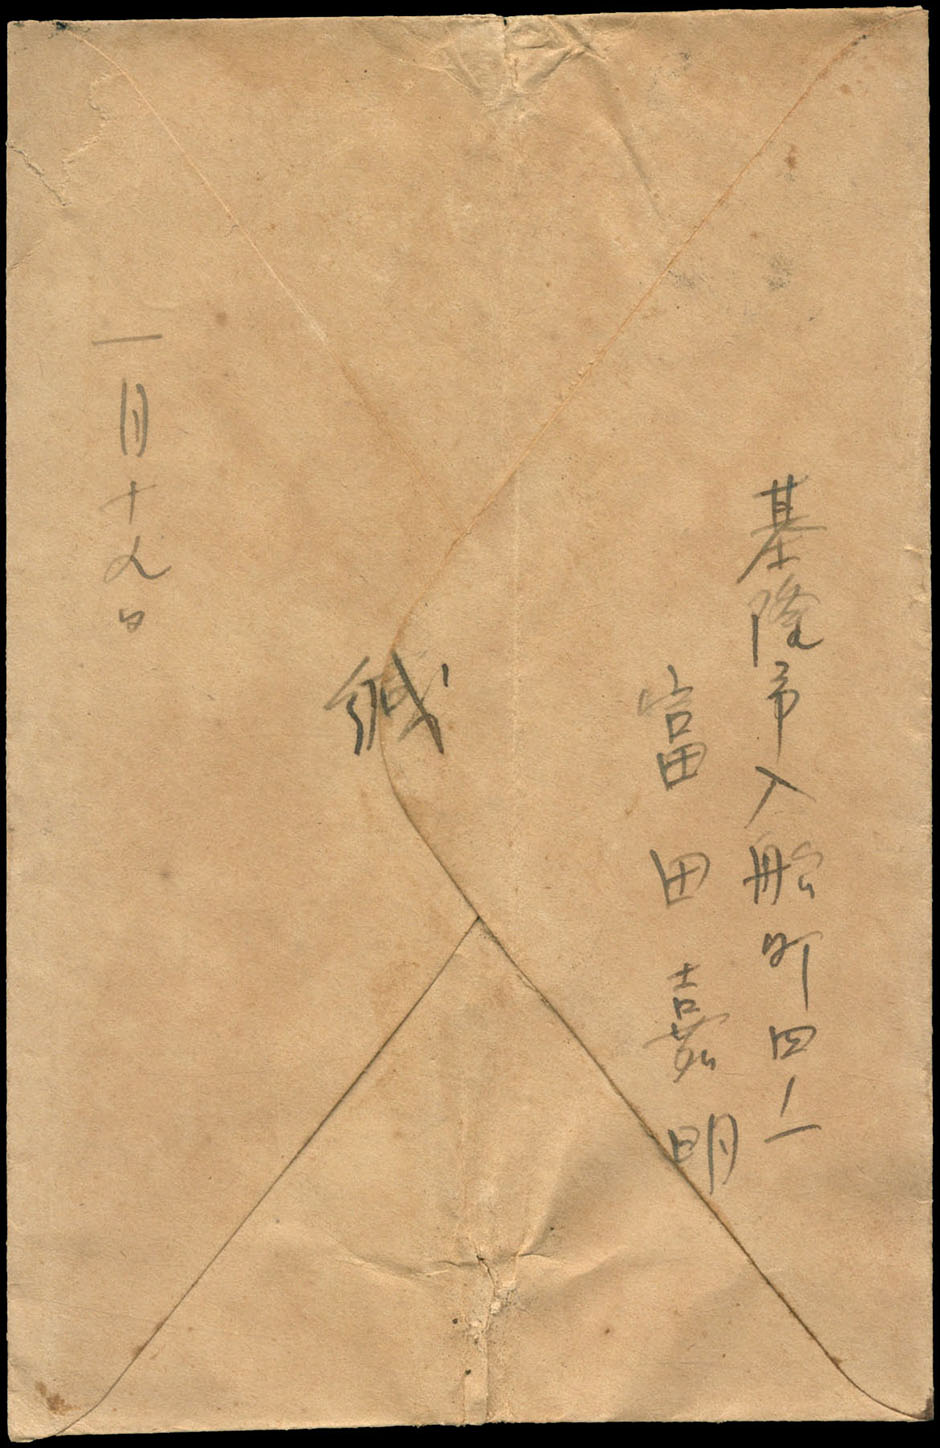 基隆市入船町四ノ一
富田嘉明
緘
一月十九日